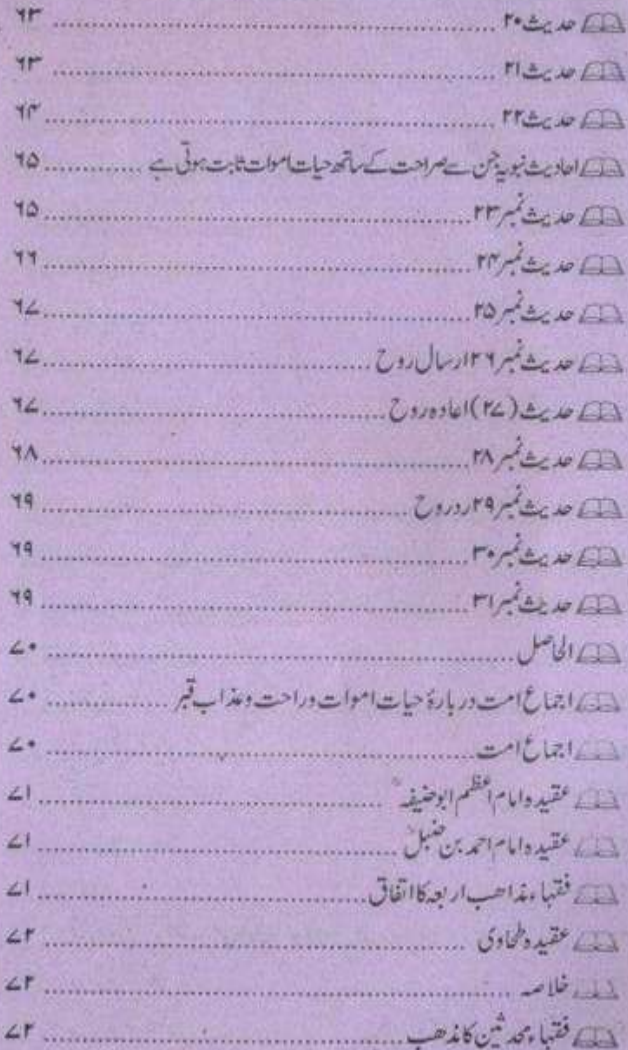 حدیث ۲۰ ........ ۶۳
حدیث ۲۱ ........ ۶۳
حدیث ۲۲ ........ ۶۴
احادیث نبویہ جن سے صراحت کے ساتھ حیات اموات ثابت ہوتی ہے ........ ۶۵
حدیث نمبر ۲۳ ........ ۶۵
حدیث نمبر ۲۴ ........ ۶۶
حدیث نمبر ۲۵ ........ ۶۷
حدیث نمبر ۲۶ ارسال روح ........ ۶۷
حدیث (۲۷) اعادہ روح ........ ۶۷
حدیث نمبر ۲۸ ........ ۶۸
حدیث نمبر ۲۹ ردروح ........ ۶۹
حدیث نمبر ۳۰ ........ ۶۹
حدیث نمبر ۳۱ ........ ۶۹
الحاصل ........ ۷۰
اجماع امت دربارۂ حیات اموات وراحت وعذاب قبر ........ ۷۰
اجماع امت ........ ۷۰
عقیدہ امام اعظم ابوحنیفہؒ ........ ۷۱
عقیدہ امام احمد بن حنبلؒ ........ ۷۱
فقہاء مذاھب اربعہ کا اتفاق ........ ۷۱
عقیدہ طحاوی ........ ۷۲
خلاصہ ........ ۷۲
فقہاء محدثین کا مذھب ........ ۷۲